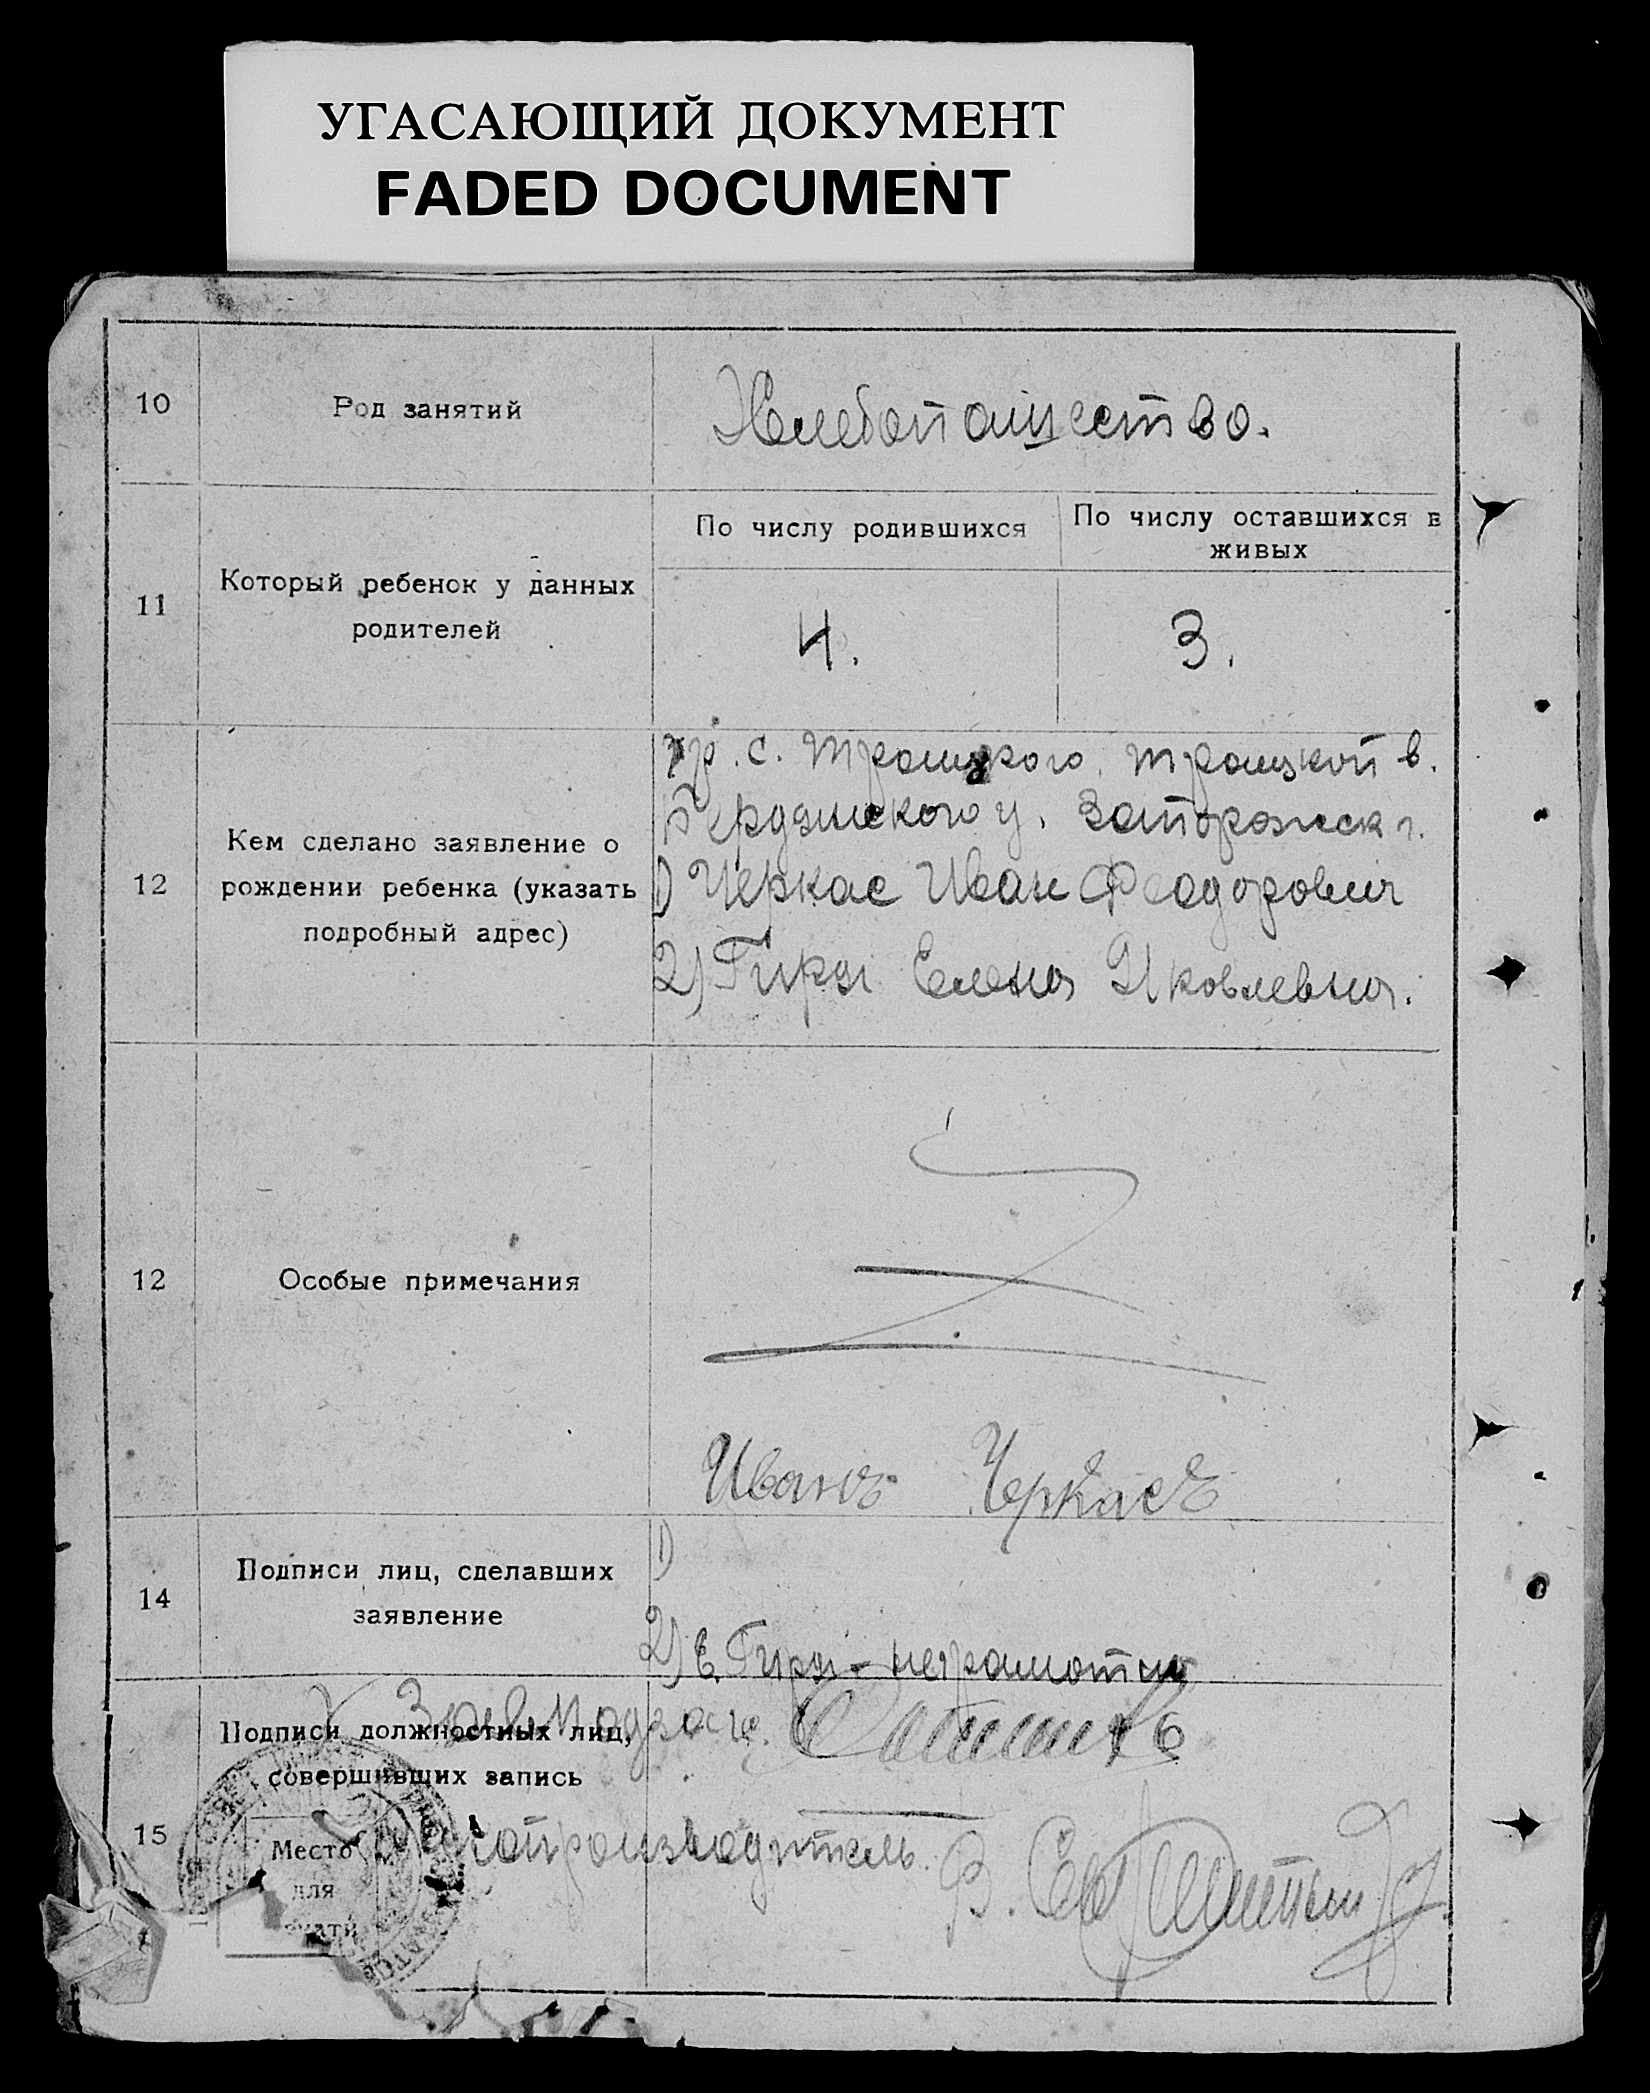 УГАСАЮЩИЙ ДОКУМЕНТ
FADED DOCUMENT
10
Род занятий
Хлебопашество.
11
Который ребенок у данных
родителей
По числу родившихся
По числу оставшихся в
живых
4.
3.
12
Кем сделано заявление о
рождении ребенка (указать
подробный адрес)
гр. с. Троицкого, Троицкой в.
Бердянского у. Запорожск г.
1) Черкас Иван Феодорович
2) Гиря Елена Яковлевна.
12
Особые примечания
Иванъ Черкасъ
14
Подписи лиц, сделавших
заявление
1)
2) Е. Гиря - неграмотна
15
Подписи должностных лиц,
совершивших запись
Зав. Подзагс.
Место
для
печати
Делопроизводитель.
В.